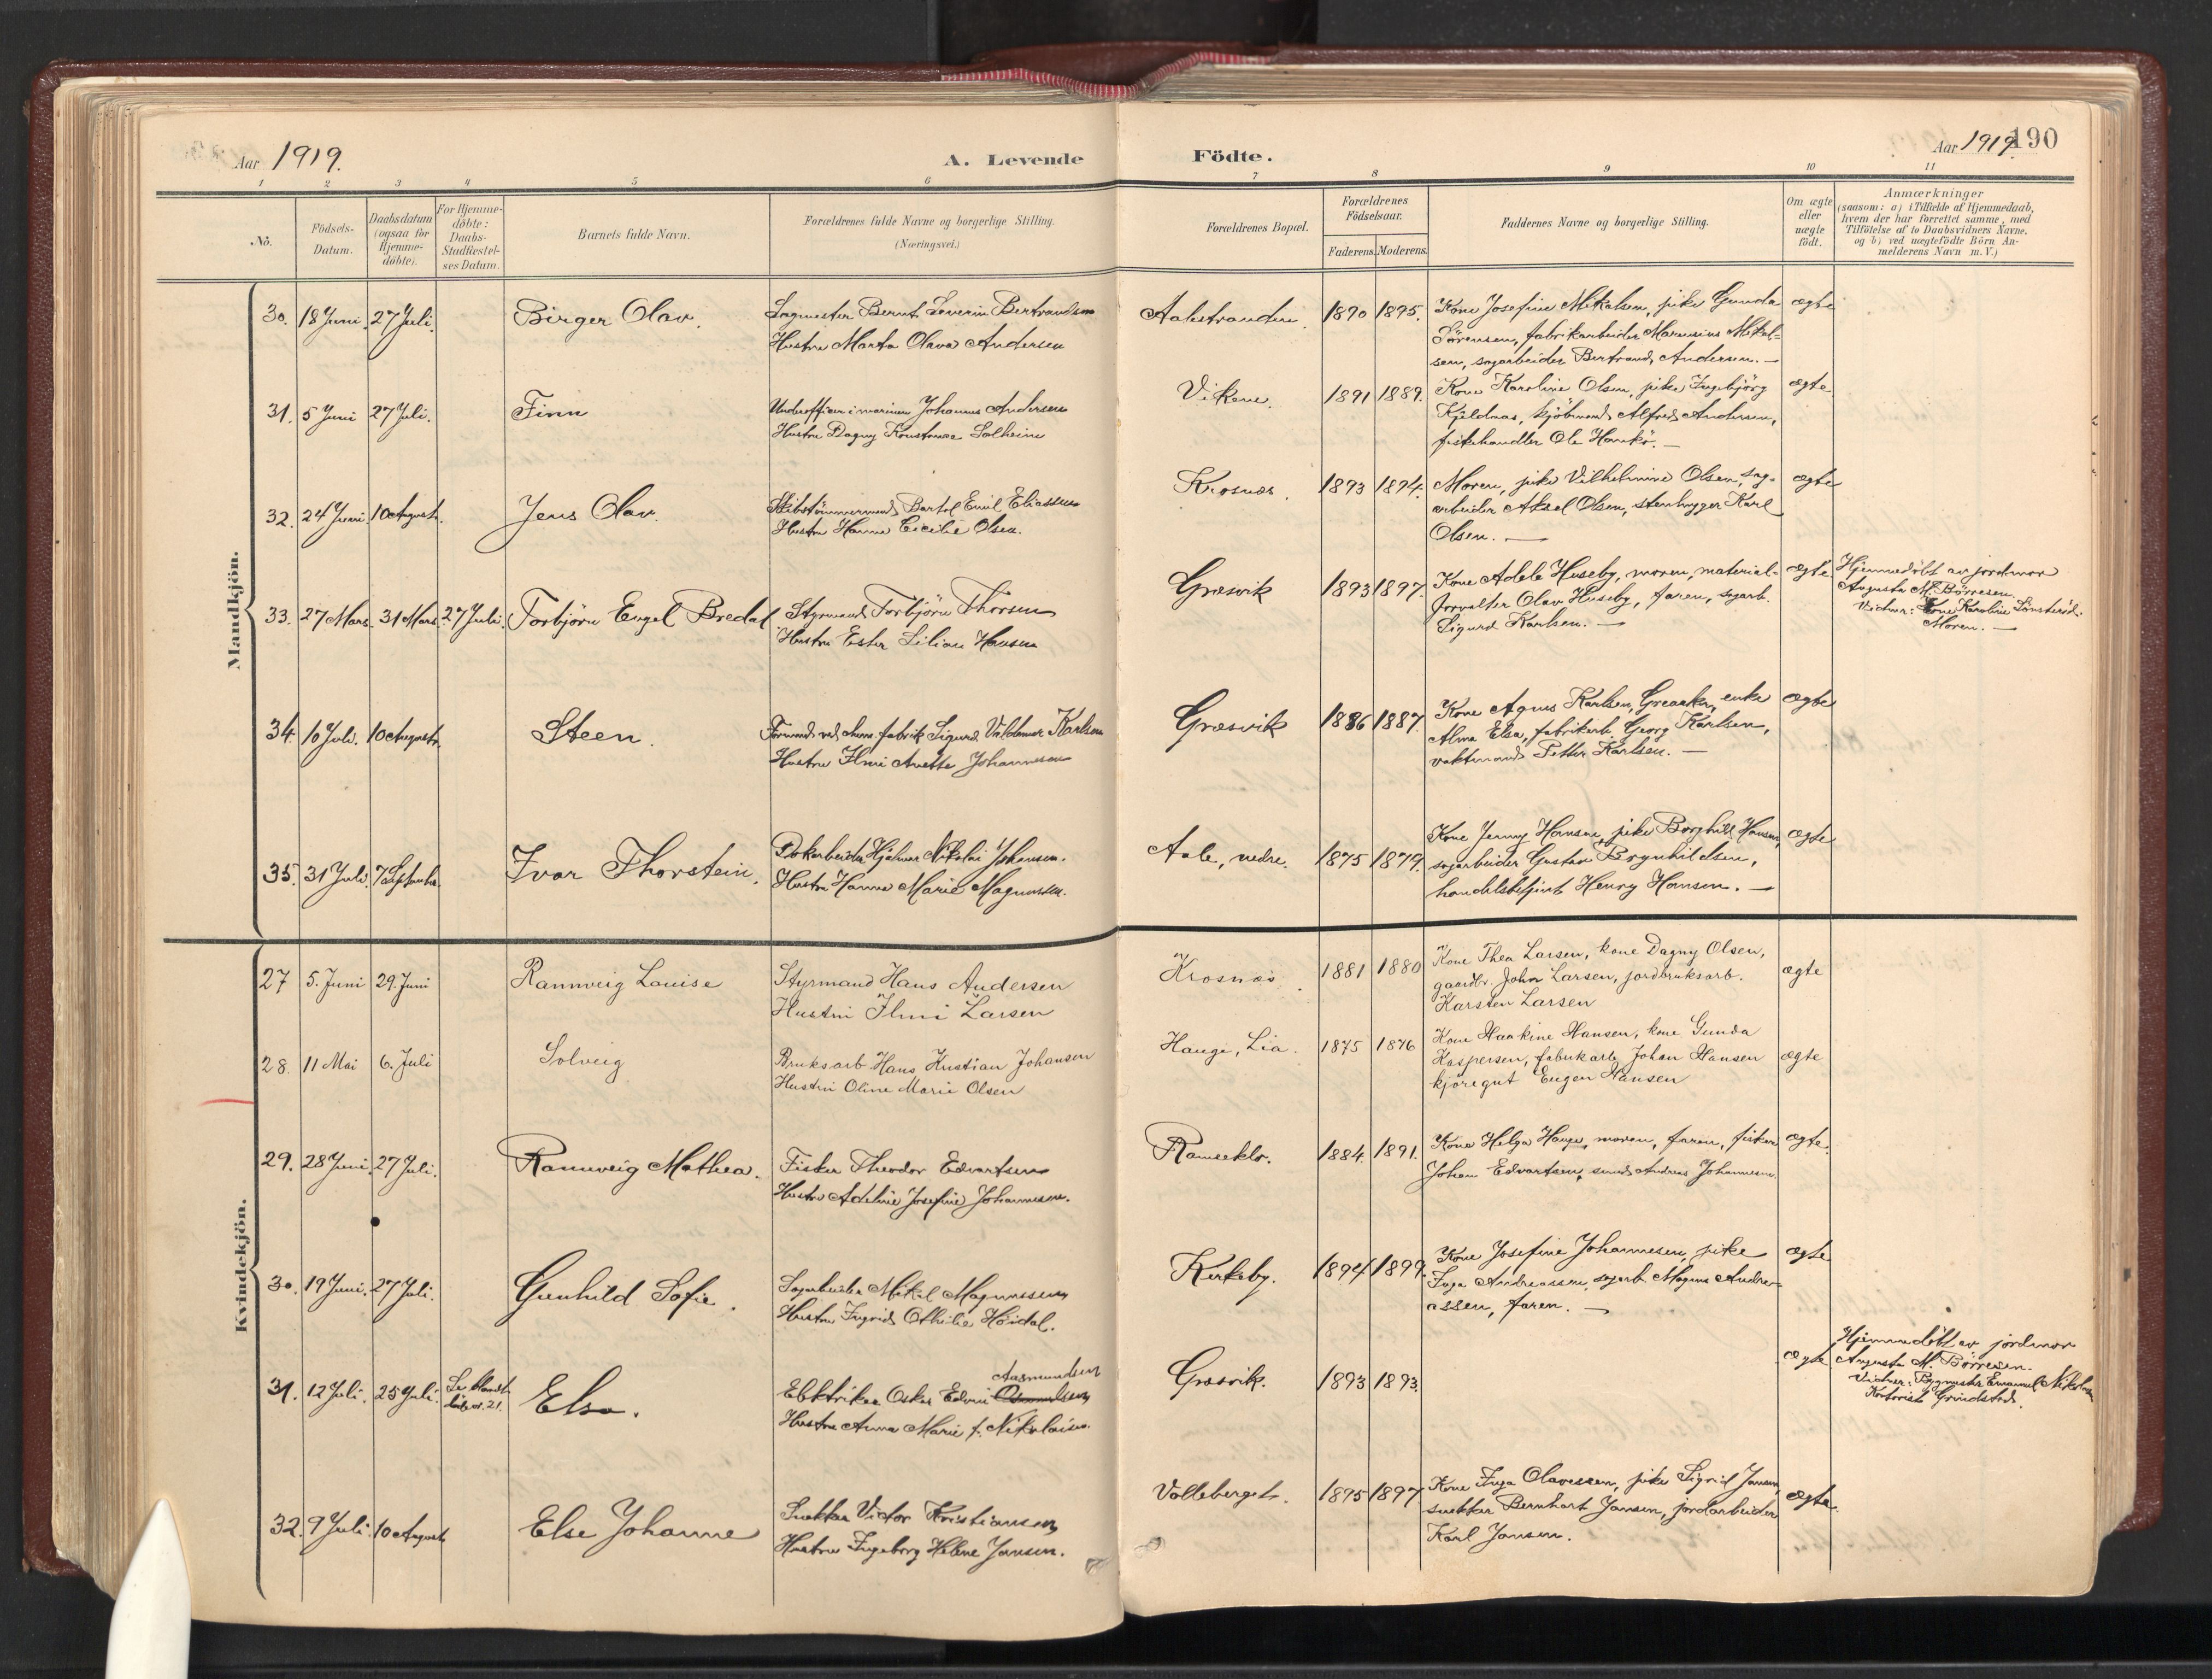 Aar 1919.
A. Levende
Födte.
Aar 1919.
190
1 2 3 4 5 6 7 8 9 10 11
No.
Födsels-
Datum.
Daabsdatum
(ogsaa for
Hjemme-
döbte).
For Hjemme-
döbte:
Daabs-
Stadfæstel-
ses Datum.
Barnets fulde Navn.
Forældrenes fulde Navne og borgerlige Stilling.
(Næringsvei.)
Forældrenes Bopæl.
Forældrenes
Födselsaar.
Faderens. Moderens.
Faddernes Navne og borgerlige Stilling.
Om ægte
eller
uægte
födt.
Anmærkninger
(saasom: a) i Tilfælde af Hjemmedaab,
hvem der har forrettet samme, med
Tilföielse af to Daabsvidners Navne,
og b) ved uægtefödte Börn An-
melderens Navn m. V.)
Mandkjön.
30. 18 Juni. 27 Juli. Birger Olav.
Sagmester Bernt Severin Bertrandsen
Hustru Marta Olava Andersen
Aalestranden. 1890 1895.
Kone Josefine Mikalsen, pike Gunda
Sörensen, fabrikarbeider Marensius Mikal-
sen, sagarbeider Bertrand Andersen. —
ægte
31. 5 Juni 27 Juli. Finn
Underofficer i marinen Johannes Andersen
Hustru Dagny Konstanse Solheim
Vikene. 1891 1889.
Kone Karoline Olsen, pike Ingebjörg
Kjeldnas, kjöbmand Alfred Andersen,
fiskehandler Ole Hankö. —
ægte
32. 24 Juni. 10 August. Jens Olav.
Skibstömmermand Bertol Emil Eliassen
Hustru Hanna Cicilie Olsen.
Krosnæs. 1893 1894.
Moren, pike Vilhelmine Olsen, sag-
arbeider Aksel Olsen, stenhugger Karl
Olsen. —
ægte
33. 27 Mars. 31 Mars. 27 Juli. Torbjörn Engel Bredal
Styrmand Torbjörn Thorsen
Hustru Ester Lilian Hansen
Græsvik 1893 1897.
Kone Adele Huseby, moren, material-
forvalter Olav Huseby, faren, sagarb.
Sigurd Karlsen. —
ægte.
Hjemmedöbt av jordmor
Augusta M. Börresen.
Vidner: Kone Karoline Lönsteröd.
Moren. —
34. 10 Juli. 10 August. Steen.
Formand ved chem. fabrik Sigurd Valdemar Karlsen
Hustru Ilmi Anette Johannesen
Græsvik 1886 1887.
Kone Agnes Karlsen, Greaaker, enke
Alma Elsa, fabrikarb. Georg Karlsen,
vaktmand Petter Karlsen. —
ægte
35. 31 Juli. 7 September. Ivar Thorstein.
Dokarbeider Hjalmar Nikolai Johansen.
Hustru Hanna Marie Magnussen.
Aale, nedre. 1875 1879.
Kone Jenny Hansen, pike Borghild Hansen,
sagarbeider Gustav Brynhildsen,
handelsbetjent Henry Hansen. —
ægte
Kvindekjön.
27 5. Juni 29. Juni Rannveig Louise
Styrmand Hans Andersen
Hustru Ilmi Larsen
Krosnæs. 1881 1880
Kone Thea Larsen, kone Dagny Olsen,
gaardbr. John Larsen, jordbruksarb.
Karsten Larsen
ægte
28. 11 Mai 6. Juli Solveig
Bruksarb. Hans Kristian Johansen
Hustru Oline Marie Olsen
Hauge, Lia. 1875 1876
Kone Haakine Hansen, kone Gunda
Kaspersen, fabrikarb. Johan Hansen
kjöregut Eugen Hansen
ægte
29. 28 Juni. 27 Juli. Rannveig Mathea.
Fisker Theodor Edvartsen
Hustru Adeline Josefine Johannessen.
Ramseklo. 1884 1891.
Kone Helga Hauge, moren, faren, fisker
Johan Edvartsen, smed Andreas Johannesen.
ægte.
30. 19 Juni. 27 Juli. Gunhild Sofie.
Sagarbeider Mikal Magnussen
Hustru Ingrid Othilie Höidal.
Kirkeby. 1894 1899.
Kone Josefine Johannesen, pike
Inga Andreassen, sagarb. Magnus Andre-
assen, faren. —
ægte
31. 12 Juli. 25 Juli. Elsa.
Aasmundsen
Elektriker Oskar Edvin
Hustru Anna Marie f. Nikolaisen.
Græsvik. 1893 1893.
ægte
Hjemmedöbt av jordmor
Augusta M. Börresen.
Vidner: Bygmester Emanuel Nikolaisen
Kontorist Grindstad.
32. 9 Juli. 10 August. Else Johanne
Snekker Victor Kristiansen
Hustru Ingeborg Helene Jansen.
Volleberget. 1895 1897
Kone Inga Olavesen, pike Sigrid Jansen
snekker Bernhart Jansen, jordarbeider
Karl Jansen.
ægte.